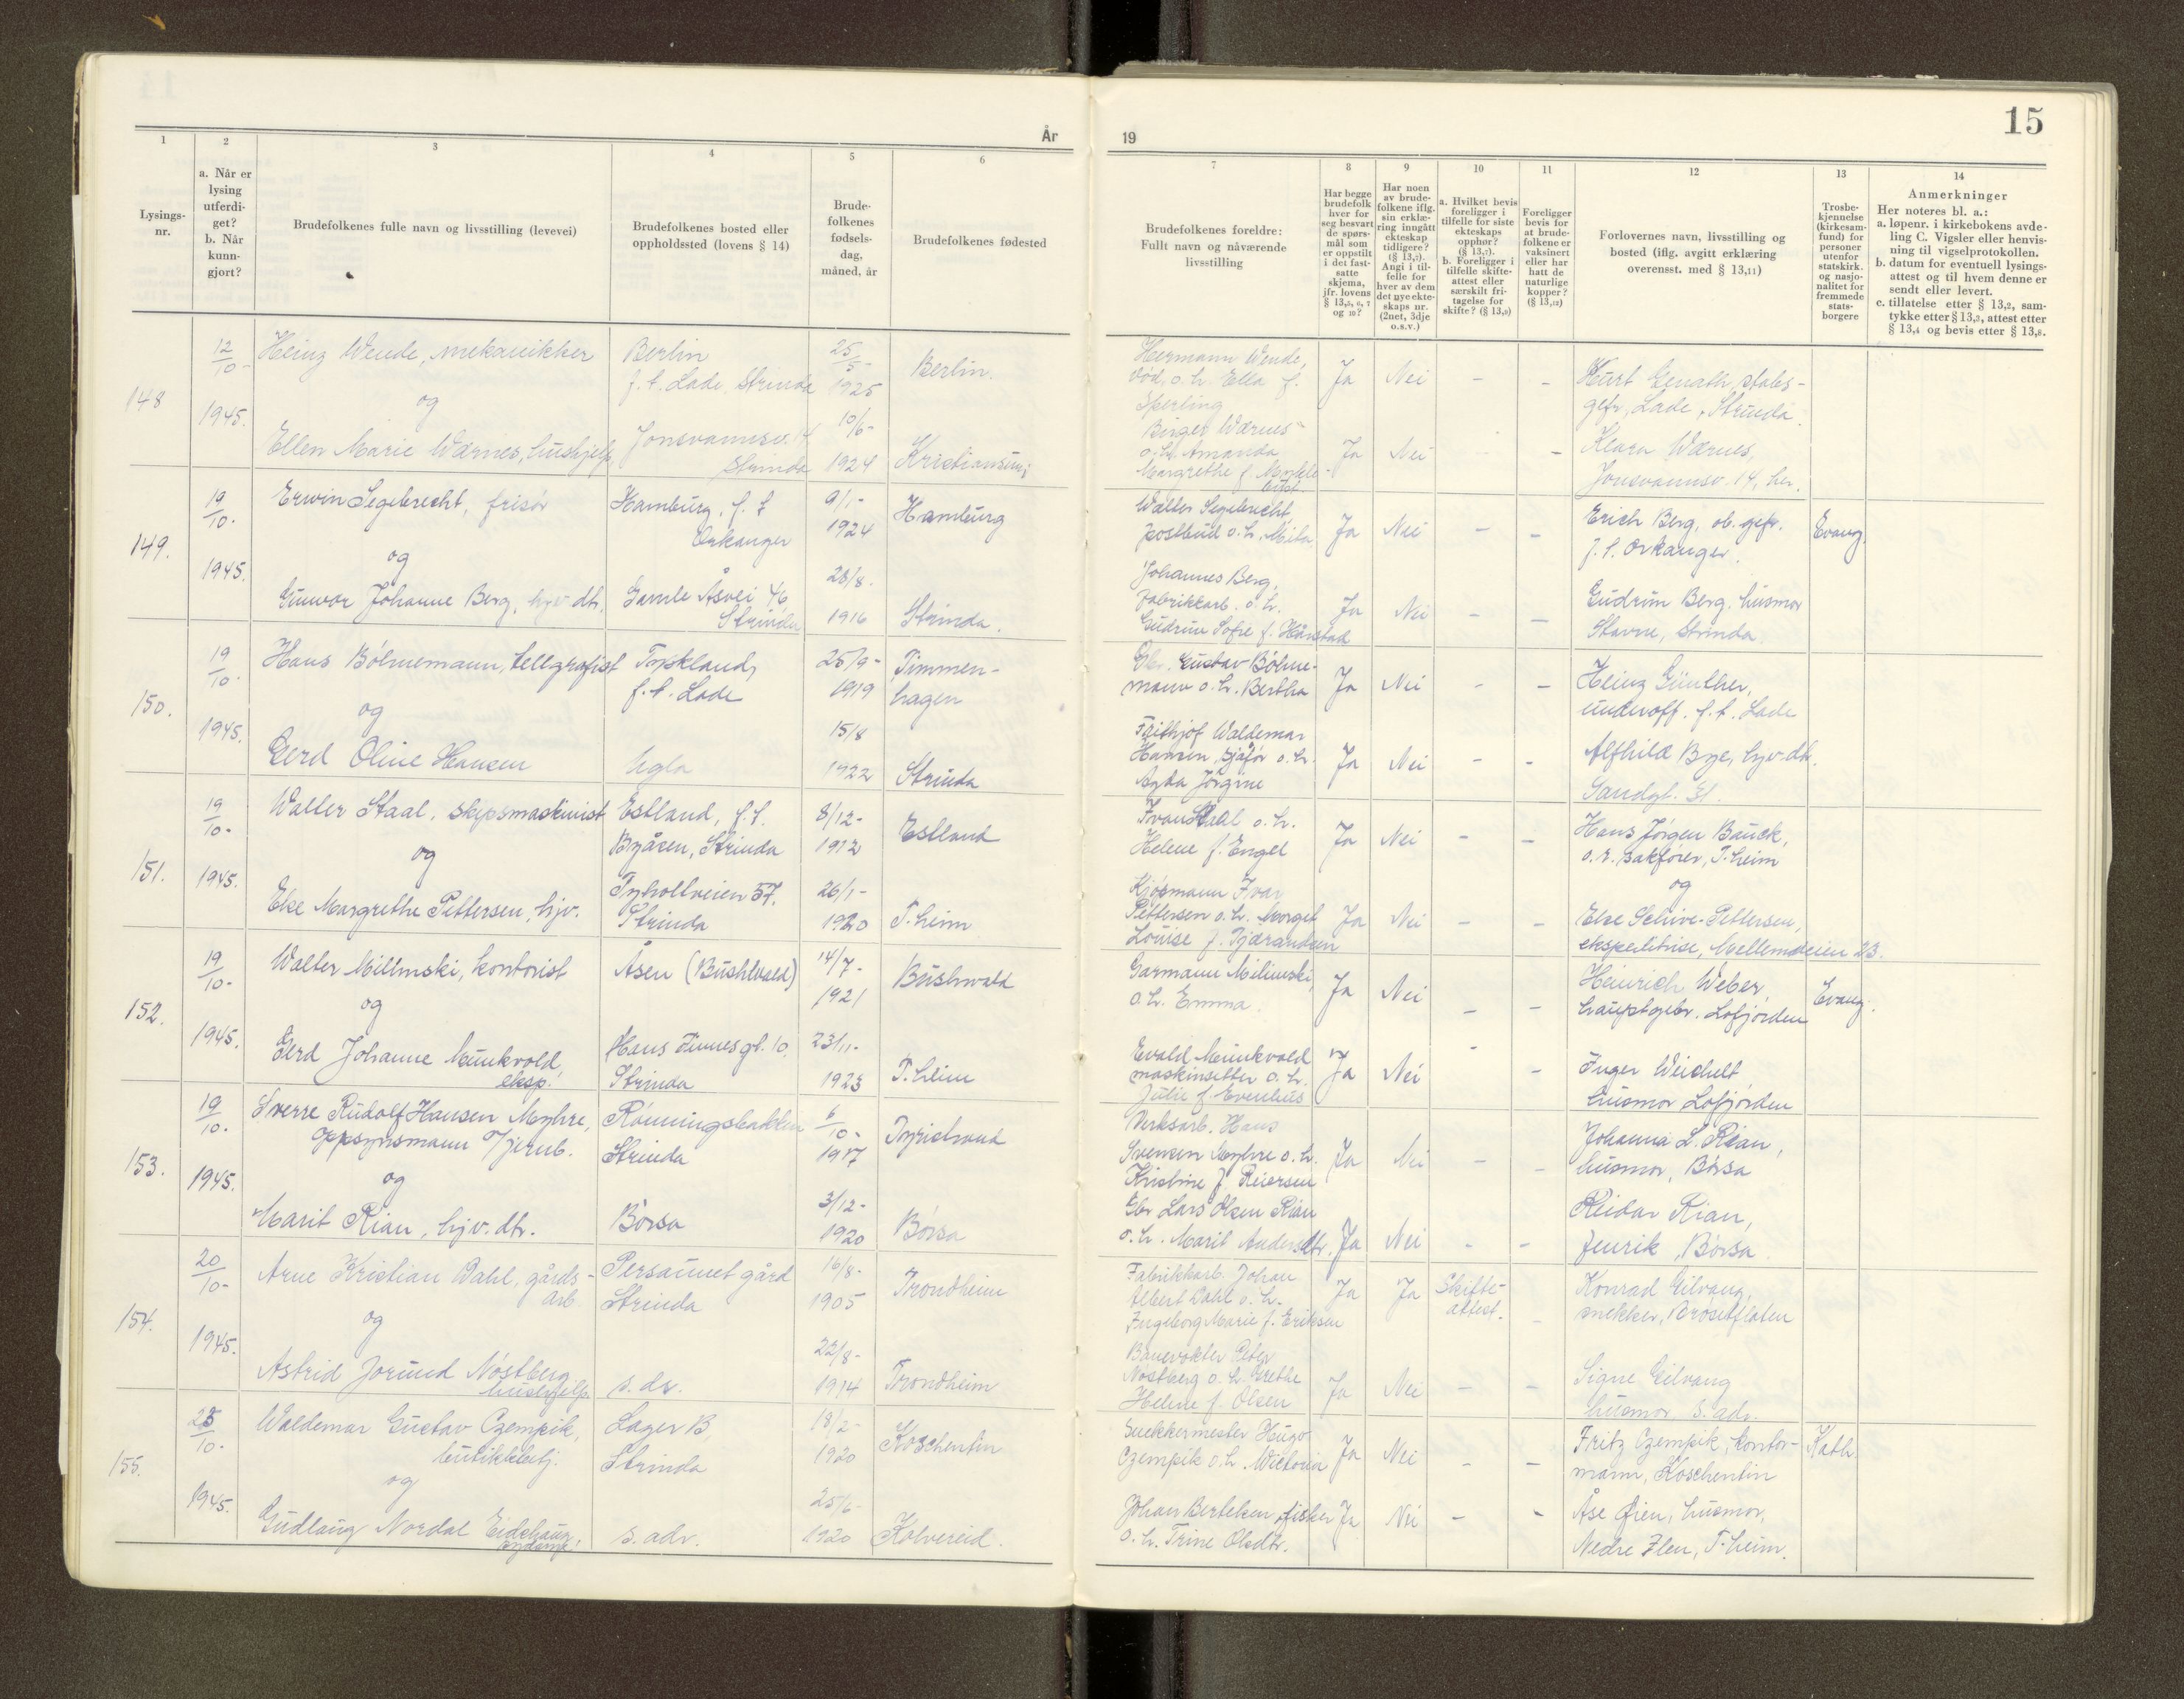 År
19
15
1
2
3
4
5
6
7
8
9
10
11
12
13
14
Lysings-
nr.
a. Når er
lysing
utferdi-
get?
b. Når
kunn-
gjort?
Brudefolkenes fulle navn og livsstilling (levevei)
Brudefolkenes bosted eller
oppholdssted (lovens § 14)
Brude-
folkenes
fødsels-
dag,
måned, år
Brudefolkenes fødested
Brudefolkenes foreldre:
Fullt navn og nåværende
livsstilling
Har begge
brudefolk
hver for
seg besvart
de spørs-
mål som
er oppstilt
i det fast-
satte
skjema,
jfr. lovens
§ 13,5, 6, 7
og 10?
Har noen
av brude-
folkene iflg.
sin erklæ-
ring inngått
ekteskap
tidligere?
(§ 13,7).
Angi i til-
felle for
hver av dem
det nye ekte-
skaps nr.
(2net, 3dje
o.s.v.)
a. Hvilket bevis
foreligger i
tilfelle for siste
ekteskaps
opphør?
(§ 13,7).
b. Foreligger i
tilfelle skifte-
attest eller
særskilt fri-
tagelse for
skifte? (§ 13,9)
Foreligger
bevis for
at brude-
folkene er
vaksinert
eller har
hatt de
naturlige
kopper?
(§ 13,12)
Forlovernes navn, livsstilling og
bosted (iflg. avgitt erklæring
overensst. med § 13,11)
Trosbe-
kjennelse
(kirkesam-
fund) for
personer
utenfor
statskirk.
og nasjo-
nalitet for
fremmede
stats-
borgere
Anmerkninger
Her noteres bl. a.:
a. løpenr. i kirkebokens avde-
ling C. Vigsler eller henvis-
ning til vigselprotokollen.
b. datum for eventuell lysings-
attest og til hvem denne er
sendt eller levert.
c. tillatelse etter § 13,2, sam-
tykke etter § 13,3, attest etter
§ 13,4 og bevis etter § 13,8.
148
12/10-
1945.
Heinz Wende, mekanikker
og
Ellen Marie Wærnes, hushjelp
Berlin
f. t. Lade, Strinda
Jonsvannsv. 14
Strinda
25/5-
1925
10/6-
1924
Berlin.
Kristiansun;
Hermann Wende,
død, o. h. Ella f.
Sperling
Birger Wærnes
o. h. Amanda
Margrethe f.
Ja Nei - -
Ja Nei -
Kurt Genath, stabs-
gefr, Lade, Strinda.
Klara Wærnes,
Jonsvannsv. 14, her.
149.
19/10.
1945.
Erwin Segebrecht, frisør
og
Gunvor Johanne Berg, hjv. dtr.
Hamburg, f. t
Orkanger
Gamle Åsvei 46
Strinda
9/1-
1924
28/8.
1916
Hamburg
Strinda.
Walter Segebrecht
postbud o. h. Mila
Johannes Berg,
fabrikkarb. o. h.
Gudrun Sofie f. Hånstad
Ja Nei - -
Ja Nei - -
Erich Berg, ob. gefr.
f. t. Orkanger.
Gudrun Berg, husmor
Stavne, Strinda.
Evang.
150.
19/10.
1945.
Hans Bölmemann, tellgrafist
og
Gerd Oline Hansen
Tyskland,
f. t. Lade
Ugla
25/9-
1919
15/8
1922
Timmen-
hagen
Strinda
Gbr. Gustav Bölme-
mann o. h. Bertha
Frithjof Waldemar
Hansen, sjåfør o. h.
Agda Jörgine
Ja Nei - -
Ja Nei - -
Heinz Günther,
underoff. f. t. Lade
Alfhild Bye, hjv. dtr.
Sandgt. 31.
151.
19/10-
1945.
Walter Staal, skipsmaskinist
og
Else Margrethe Pettersen, hjv.
Estland, f. t.
Byåsen, Strinda
Tyholtveien 57.
Strinda
8/12-
1912
26/1-
1920
Estland
T.heim
Ivan Staal o. h.
Helene f. Engel
Kjøpmann Ivar
Pettersen o. h. Margit
Louise f. Tjærandsen
Ja Nei - -
Ja Nei - -
Hans Jörgen Bauck,
o. r. sakfører, T.heim
og
Else Schive-Pettersen,
ekspeditrise, Mellemveien 23.
152.
19/10-
1945.
Walter Millinski, kontorist
og
Gerd Johanne Munkvold,
eksp.
Åsen (Bushlvald)
Hans Finnes gt. 10.
Strinda
14/7-
1921
23/11-
1923
Bushwald
T.heim
Garmann Milinski,
o. h. Emma.
Evald Munkvold
maskinsetter o. h.
Julie f. Evenhus
Ja Nei - -
Ja Nei - -
Heinrich Weber,
hauptgebr. Lofjorden
Inger Weichelt
husmor Lofjorden
Evang.
153.
19/10.
1945.
Sverre Rudolf Hansen Myhre,
oppsynsmann v/jernb.
og
Marit Rian, hjv. dtr.
Rönningsbakken
Strinda
Börsa
6/10-
1917
3/12-
1920
Tyristrand
Börsa
Verksarb. Hans
Svensen Myhre o. h.
Kristine f. Reiersen
Gbr Lars Olsen Rian
o. h. Marit Andersdtr.
Ja Nei - -
Ja Nei - -
Johanna L. Rian,
husmor, Börsa
Reidar Rian,
Jenrik, Börsa.
154.
20/10-
1945.
Arne Kristian Dahl, gårds-
arb.
og
Astrid Jorund Nöstberg
hushjelp.
Persaunet gård
Strinda
s. ds.
16/8-
1905
22/8-
1914
Trondheim
Trondheim
Fabrikkarb. Johan
Albert Dahl o. h.
Ingeborg Marie f. Eriksen
Banevokter Peter
Nöstberg o. h. Grethe
Helene f. Olsen
Ja Ja Skifte-
attest. -
Ja Nei - -
Konrad Gilvang,
snekker, Brøsetflaten
Signe Gilvang
husmor s. adr.
155.
25/10.
1945.
Waldemar Gustav Czempik,
butikkbetj.
og
Gudlaug Nordal Eidshaug,
sydame.
Lager B,
Strinda
s. adr.
18/2-
1920
25/6-
1920
Koschentin
Kolvereid.
Snekkermester Hugo
Czempik o. h. Wictoria
Johan Bertelsen, fisker
o. h. Trine Olsdtr.
Ja Nei - -
Ja Nei - -
Fritz Czempik, kontor-
mann, Koschentin
Åse Øien, husmor,
Nedre Ilen, T-heim.
Kath.